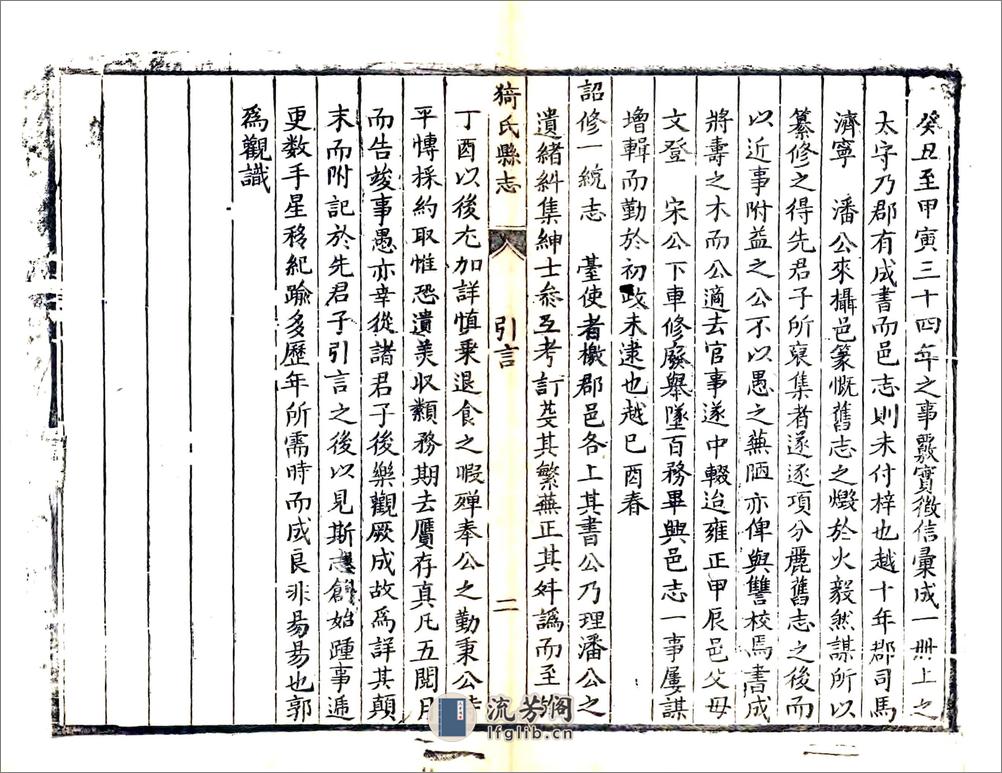 癸丑至甲寅三十四年之事覈實徵信彙成一冊上之
太守乃郡有成書而邑志則未付梓也越十年郡司馬
濟寧　潘公來攝邑篆慨舊志之燬於火毅然謀所以
纂修之得先君子所裒集者遂逐項分麗舊志之後而
以近事附益之公不以愚之蕪陋亦俾與讐校焉書成
將壽之木而公適去官事遂中輟迨雍正甲辰邑父母
文登　宋公下車修廢舉墜百務畢興邑志一事屢謀
增輯而勤於初政未逮也越己酉春
詔修一統志　臺使者檄郡邑各上其書公乃理潘公之
遺緒糾集紳士叅互考訂芟其繁蕪正其舛譌而至
猗氏縣志　引言　二
丁酉以後尤加詳慎乗退食之暇殫奉公之勤秉公持
平愽採約取惟恐遺美収纇務期去贋存真凡五閱月
而告竣事愚亦幸從諸君子後樂觀厥成故爲詳其顛
末而附記於先君子引言之後以見斯志創始踵事遞
更数手星移紀踰多歷年所需時而成良非易易也郭
爲觀識
流芳阁
lfglib.cn